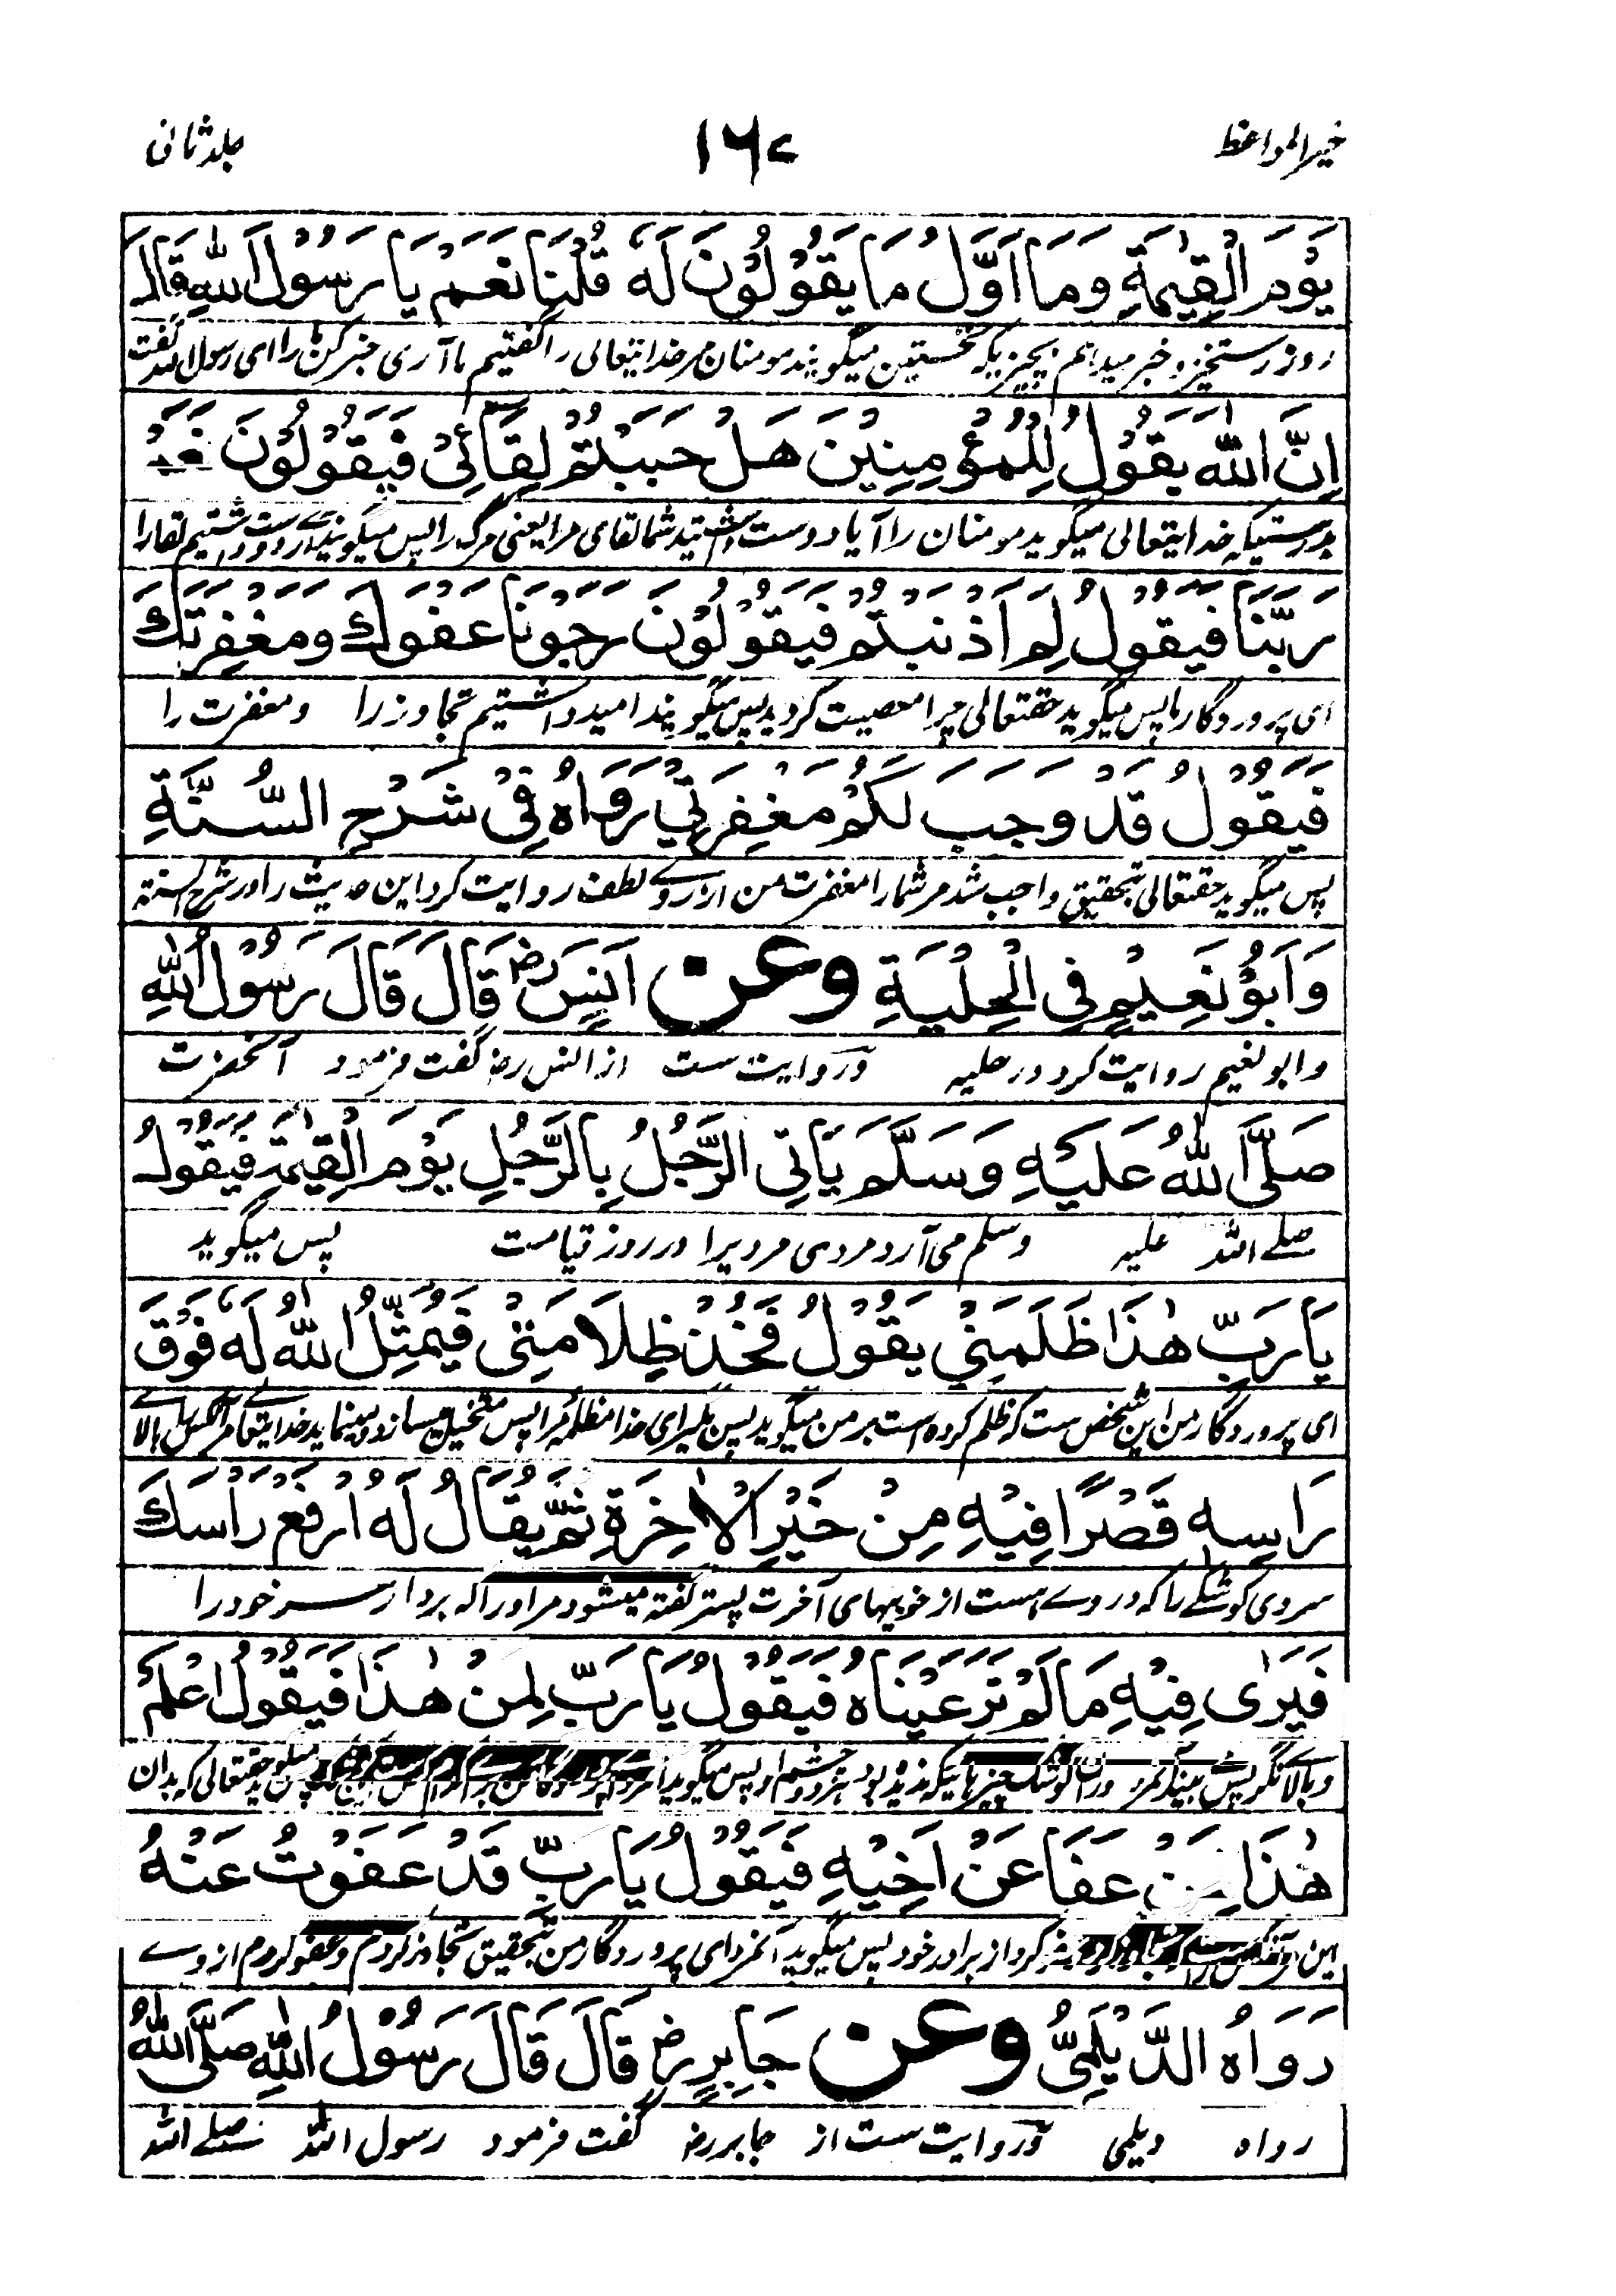 خیر المواعظ ۱۶۷ جلد ثانی
يَوْمَ الْقِيٰمَةِ وَمَا اَوَّلُ مَا يَقُوْلُوْنَ لَهٗ قُلْنَا نَعَمْ يَا رَسُوْلَ اللّٰهِ قَالَ
روز رستخیز و خبر میدهم بچیزیکه نخستین میگویند مومنان مر خدایتعالی را گفتیم ما آری خبر کن ما را ای رسول الله گفت
اِنَّ اللّٰهَ يَقُوْلُ لِلْمُؤْمِنِيْنَ هَلْ حَبَبْتُمْ لِقَائِیْ فَيَقُوْلُوْنَ
بدرستیکه خدایتعالی میگوید مومنان را آیا دوست داشتید شما لقای مرا یعنی مرگ را پس میگویند آری دوست داشتیم لقا را
رَبَّنَا فَيَقُوْلُ لِمَ اَذْنَبْتُمْ فَيَقُوْلُوْنَ رَجَوْنَا عَفْوَكَ وَمَغْفِرَتَكَ
ای پروردگار ما پس میگوید حقتعالی چرا معصیت کردید پس میگویند امید داشتیم تجاوز را و مغفرت را
فَيَقُوْلُ قَدْ وَجَبَ لَكُمْ مَغْفِرَتِیْ رَوَاهُ فِیْ شَرْحِ السُّنَّةِ
پس میگوید حقتعالی بتحقیق واجب شد مر شما را مغفرت من از روے لطف روایت کرد این حدیث را در شرح السنته
وَاَبُوْ نَعِيْمٍ فِی الْحِلْيَةِ وعن اَنَسٍ رض قَالَ قَالَ رَسُوْلُ اللّٰهِ
و ابو نعیم روایت کرد در حلیه و روایت ست از انس رض گفت فرمود آنحضرت
صَلَّی اللّٰهُ عَلَيْهِ وَسَلَّمَ يَأتِی الرَّجُلُ بِالرَّجُلِ يَوْمَ الْقِيٰمَةِ فَيَقُوْلُ
صلے الله علیه وسلم می آرد مردی مردیرا در روز قیامت پس میگوید
يَا رَبِّ هٰذَا ظَلَمَنِیْ يَقُوْلُ فَخُذْ ظِلَا مَتِیْ فَيُمَثِّلُ اللّٰهُ لَهٗ فَوْقَ
ای پروردگار من این شخص ست که ظلم کرده است بر من میگوید پس بگیر ای خدا مظلمه مرا پس متخیل میسازد و مینماید خدایتعالے مر آنکس را بالاے
رَاسِهٖ قَصْرًا فِيْهِ مِنْ خَيْرِ الْاٰخِرَةِ ثُمَّ يُقَالُ لَهُ ارْفَعْ رَاْسَكَ
سر وی کوشکے را که در وے است از خوبیهای آخرت پستر گفته میشود مر او را که بردار سر خود را
فَيَرٰی فِيْهِ مَا لَمْ تَرَ عَيْنَاهُ فَيَقُوْلُ يَا رَبِّ لِمَنْ هٰذَا فَيَقُوْلُ اعْلَمْ
پس میگوید حقتعالی که بدان
هٰذَا لِمَنْ عَفَا عَنْ اَخِيْهِ فَيَقُوْلُ يَا رَبِّ قَدْ عَفَوْتُ عَنْهُ
این کرد از برادر خود پس میگوید آنمرد ای پروردگار من بتحقیق تجاوز کردم و عفو کردم از وے
رَوَاهُ الدَّيْلَمِیُّ وعن جَابِرٍ رض قَالَ قَالَ رَسُوْلُ اللّٰهِ صَلَّی اللّٰهُ
رواه دیلمی و روایت ست از جابر رض گفت فرمود رسول الله صلے الله